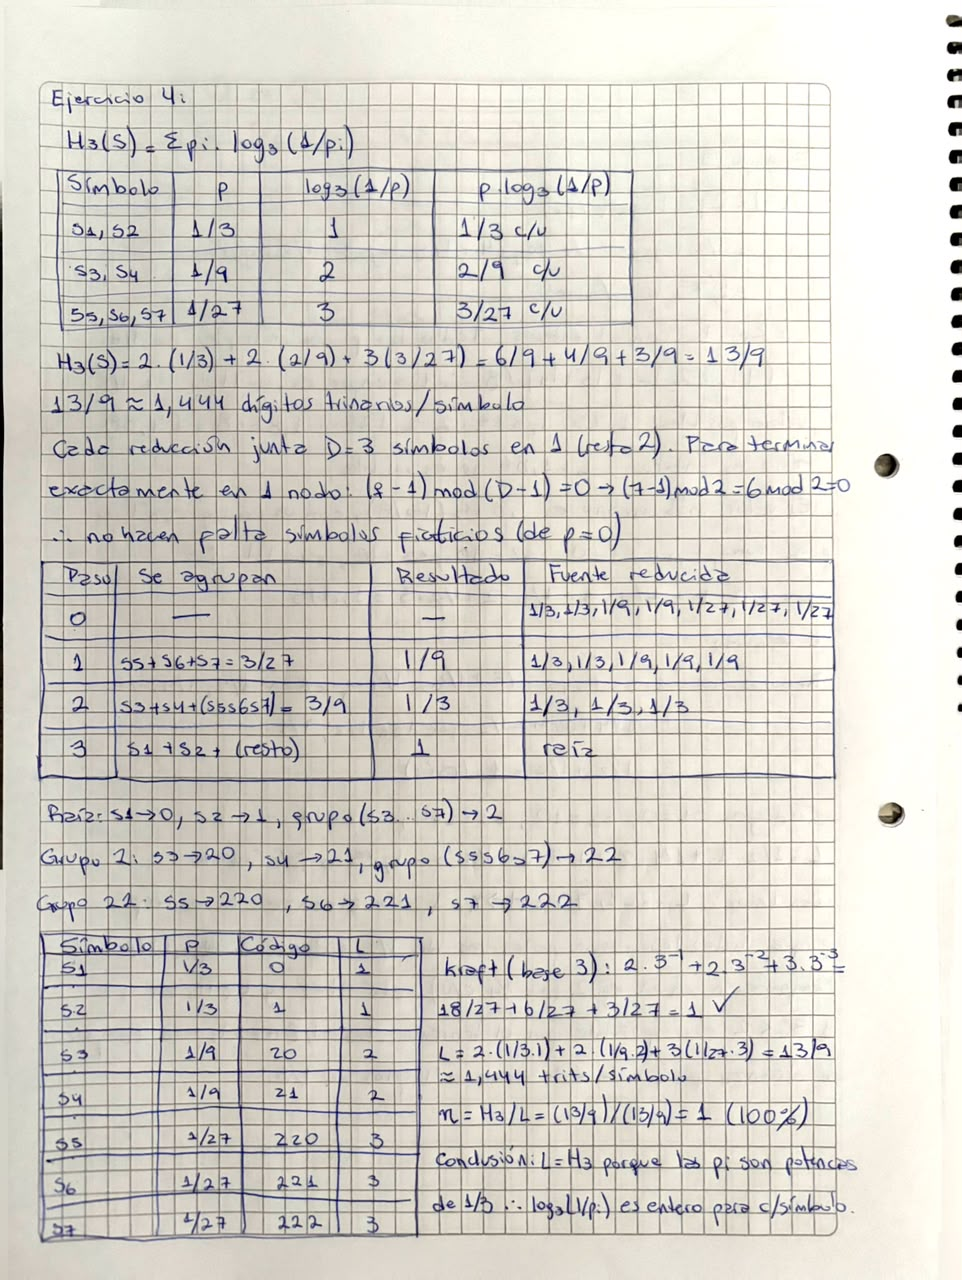 Ejercicio 4:
H3(S) = Σ pi. log3 (1/pi)
Símbolo P log3 (1/p) p.log3 (1/p)
S1, S2 1/3 1 1/3 c/u
S3, S4 1/9 2 2/9 c/u
S5, S6, S7 1/27 3 3/27 c/u
H3(S) = 2.(1/3) + 2.(2/9) + 3(3/27) = 6/9 + 4/9 + 3/9 = 13/9
13/9 ≈ 1,444 dígitos trinarios/símbolo
Cada reducción junta D=3 símbolos en 1 (resta 2). Para terminar
exactamente en 1 nodo: (q-1) mod (D-1) = 0 → (7-1) mod 2 = 6 mod 2 = 0
∴ no hacen falta símbolos ficticios (de p=0)
Paso Se agrupan Resultado Fuente reducida
0 — — 1/3, 1/3, 1/9, 1/9, 1/27, 1/27, 1/27
1 S5+S6+S7 = 3/27 1/9 1/3, 1/3, 1/9, 1/9, 1/9
2 S3+S4+(S5S6S7) = 3/9 1/3 1/3, 1/3, 1/3
3 S1+S2+(resto) 1 raíz
Raíz: S1→0, S2→1, grupo (S3...S7)→2
Grupo 2: S3→20, S4→21, grupo (S5S6S7)→22
Grupo 22: S5→220, S6→221, S7→222
Símbolo P Código L
S1 1/3 0 1
S2 1/3 1 1
S3 1/9 20 2
S4 1/9 21 2
S5 1/27 220 3
S6 1/27 221 3
S7 1/27 222 3
Kraft (base 3): 2.3^-1 + 2.3^-2 + 3.3^-3 =
18/27 + 6/27 + 3/27 = 1 ✓
L = 2.(1/3.1) + 2.(1/9.2) + 3(1/27.3) = 13/9
≈ 1,444 trits/símbolo
n = H3/L = (13/9)/(13/9) = 1 (100%)
Conclusión: L=H3 porque las pi son potencias
de 1/3 ∴ log3(1/pi) es entero para c/símbolo.